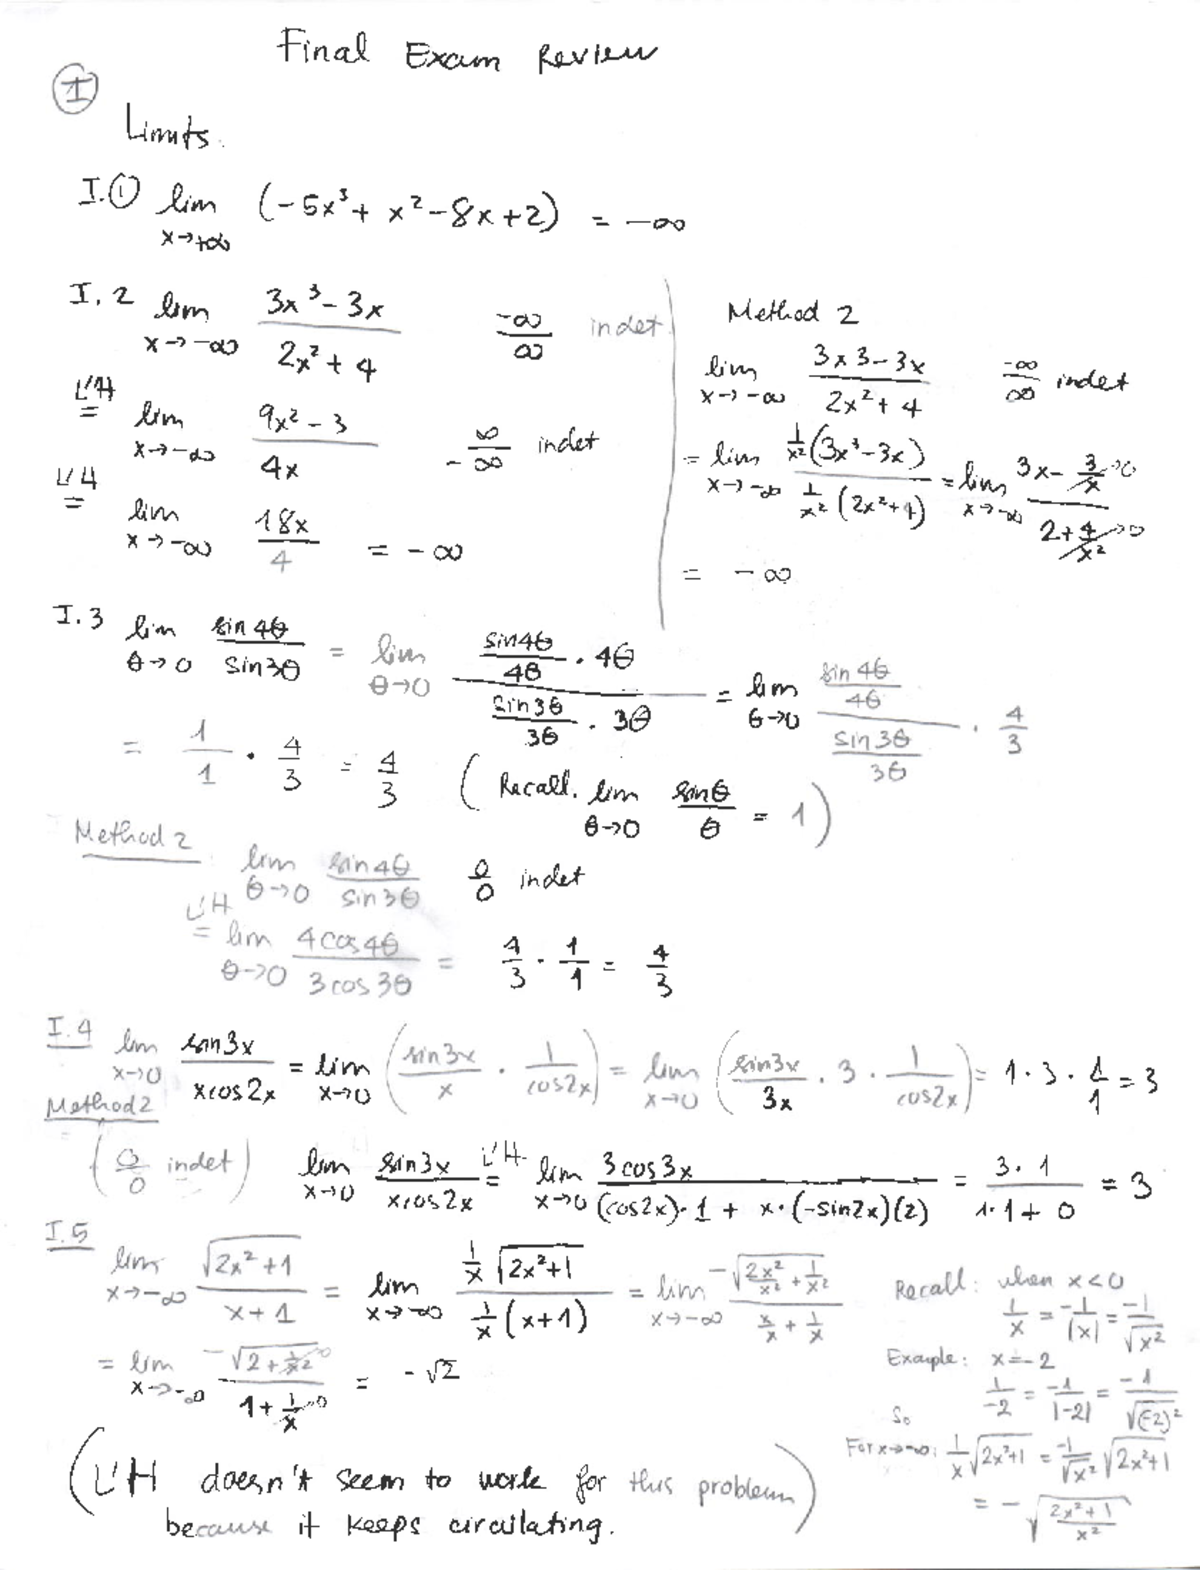 Final Exam Review
I
Limits.
I.① lim x→+∞ (-5x³ + x² - 8x + 2) = -∞
I.2 lim x→-∞ (3x³ - 3x)/(2x² + 4)   -∞/∞ indet.
L'H = lim x→-∞ (9x² - 3)/(4x)   ∞/-∞ indet
L'H = lim x→-∞ 18x/4 = -∞
Method 2
lim x→-∞ (3x3 - 3x)/(2x² + 4)   -∞/∞ indet
= lim x→-∞ (1/x² (3x³ - 3x))/(1/x² (2x² + 4)) = lim x→-∞ (3x - 3/x →0)/(2 + 4/x² →0)
= -∞
I.3 lim θ→0 sin4θ/sin3θ = lim θ→0 (sin4θ/4θ · 4θ)/(sin3θ/3θ · 3θ) = lim θ→0 (sin4θ/4θ)/(sin3θ/3θ) · 4/3
= 1/1 · 4/3 = 4/3   (Recall. lim θ→0 sinθ/θ = 1)
Method 2: lim θ→0 sin4θ/sin3θ   0/0 indet
L'H = lim θ→0 4cos4θ/3cos3θ = 4/3 · 1/1 = 4/3
I.4 lim x→0 sin3x/xcos2x = lim x→0 (sin3x/x · 1/cos2x) = lim x→0 (sin3x/3x · 3 · 1/cos2x) = 1 · 3 · 1/1 = 3
Method 2
(0/0 indet) lim x→0 sin3x/xcos2x L'H = lim x→0 3cos3x/((cos2x)·1 + x·(-sin2x)(2)) = 3·1/(1·1 + 0) = 3
I.5
lim x→-∞ √(2x² + 1)/(x + 1) = lim x→-∞ (1/x √(2x²+1))/(1/x (x+1)) = lim x→-∞ -√(2x²/x² + 1/x²)/(x/x + 1/x)
= lim x→-∞ -√(2 + 1/x² →0)/(1 + 1/x →0) = -√2
Recall: when x<0
1/x = -1/|x| = -1/√x²
Example: x=-2
1/-2 = -1/|-2| = -1/√(-2)²
So
For x→-∞: 1/x √(2x²+1) = -1/√x² √(2x²+1)
= -√((2x²+1)/x²)
(L'H doesn't seem to work for this problem
because it keeps circulating.)